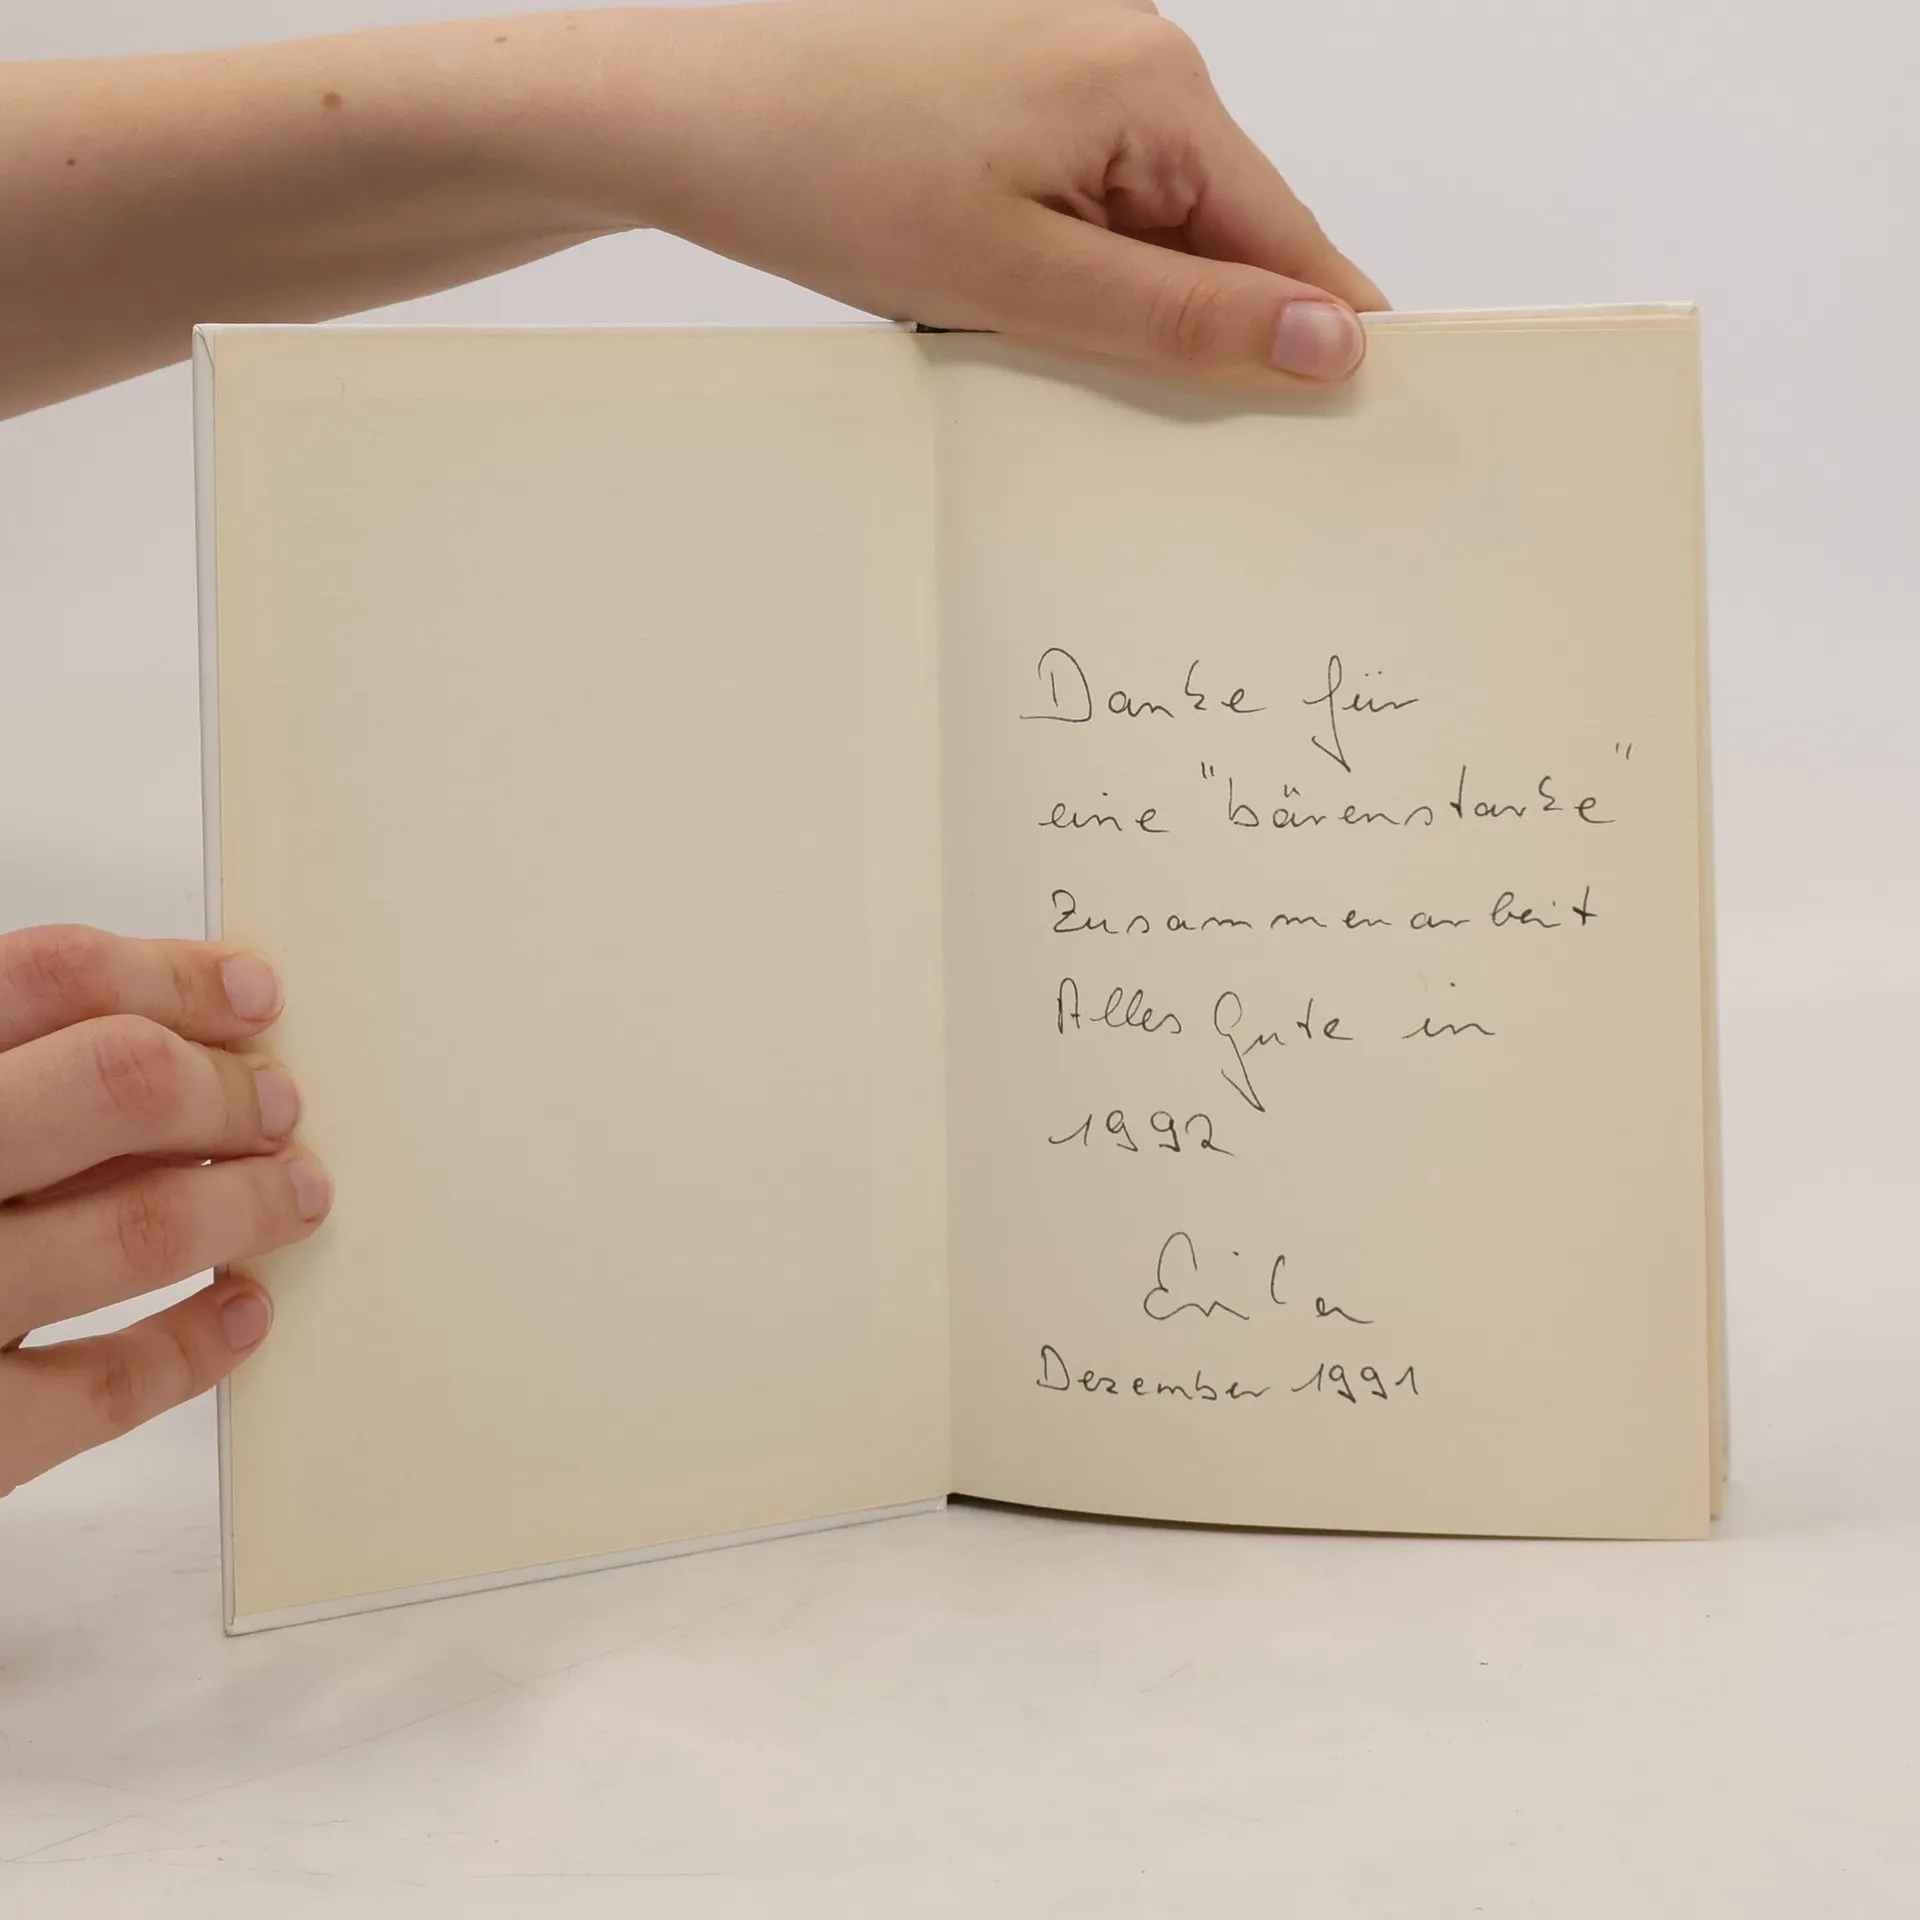 Danke für
eine "bärenstarke"
Zusammenarbeit
Alles Gute in
1992
Dezember 1991